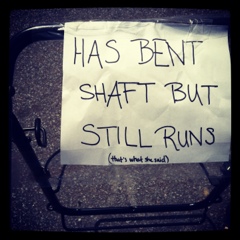 HAS BENT
SHAFT BUT
STILL RUNS
(that's what she said)